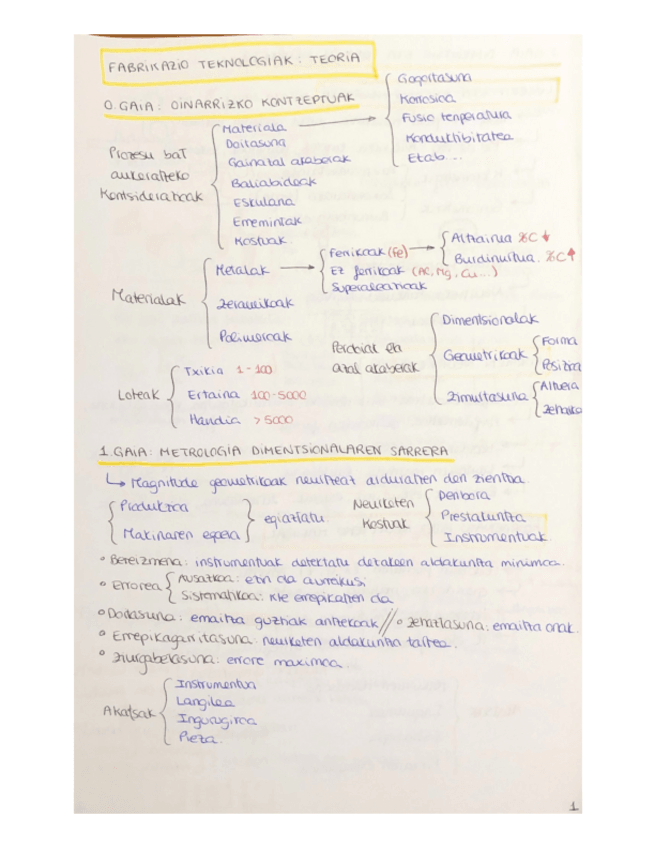 FABRIKAZIO TEKNOLOGIAK: TEORIA
0.GAIA: OINARRIZKO KONTZEPTUAK
Prozesu bat aukeratzeko Kontsiderazioak
Materiala
Gogortasuna
Korrosioa
Fusio tenperatura
Konduktibitatea
Etab...
Doitasuna
Gainazal akaberak
Baliabideak
Eskulana
Erremintak
Kostuak
Materialak
Metalak
Ferrikoak (Fe)
Altzairua %C ↓
Burdinurtua. %C ↑
Ez ferrikoak (Al, Mg, Cu...)
Superaleazioak
Zeramikoak
Polimeroak
Perdoiak eta azal akaberak
Dimentsionalak
Geometrikoak
Forma
Zimurtasuna
Altuera
Loteak
Txikia 1-100
Ertaina 100-5000
Handia >5000
1.GAIA: METROLOGIA DIMENTSIONALAREN SARRERA
↳ Magnitude geometrikoak neurtzeaz arduratzen den zientzia.
Produktua
Makinaren egoera
egiaztatu.
Neurketen Kostuak
Denbora
Prestakuntza
Instrumentuak
° Bereizmena: instrumentuak detektatu dezakeen aldakuntza minimoa.
° Errorea
Ausazkoa: ezin da aurrikusi
Sistematikoa: kte errepikatzen da
° Doitasuna: emaitza guztiak antzekoak // ° Zehaztasuna: emaitza onak.
° Errepikagarritasuna: neurketen aldakuntza tartea.
° Ziurgabetasuna: errore maximoa.
Akatsak
Instrumentua
Langilea
Ingurugiroa
Pieza.
1